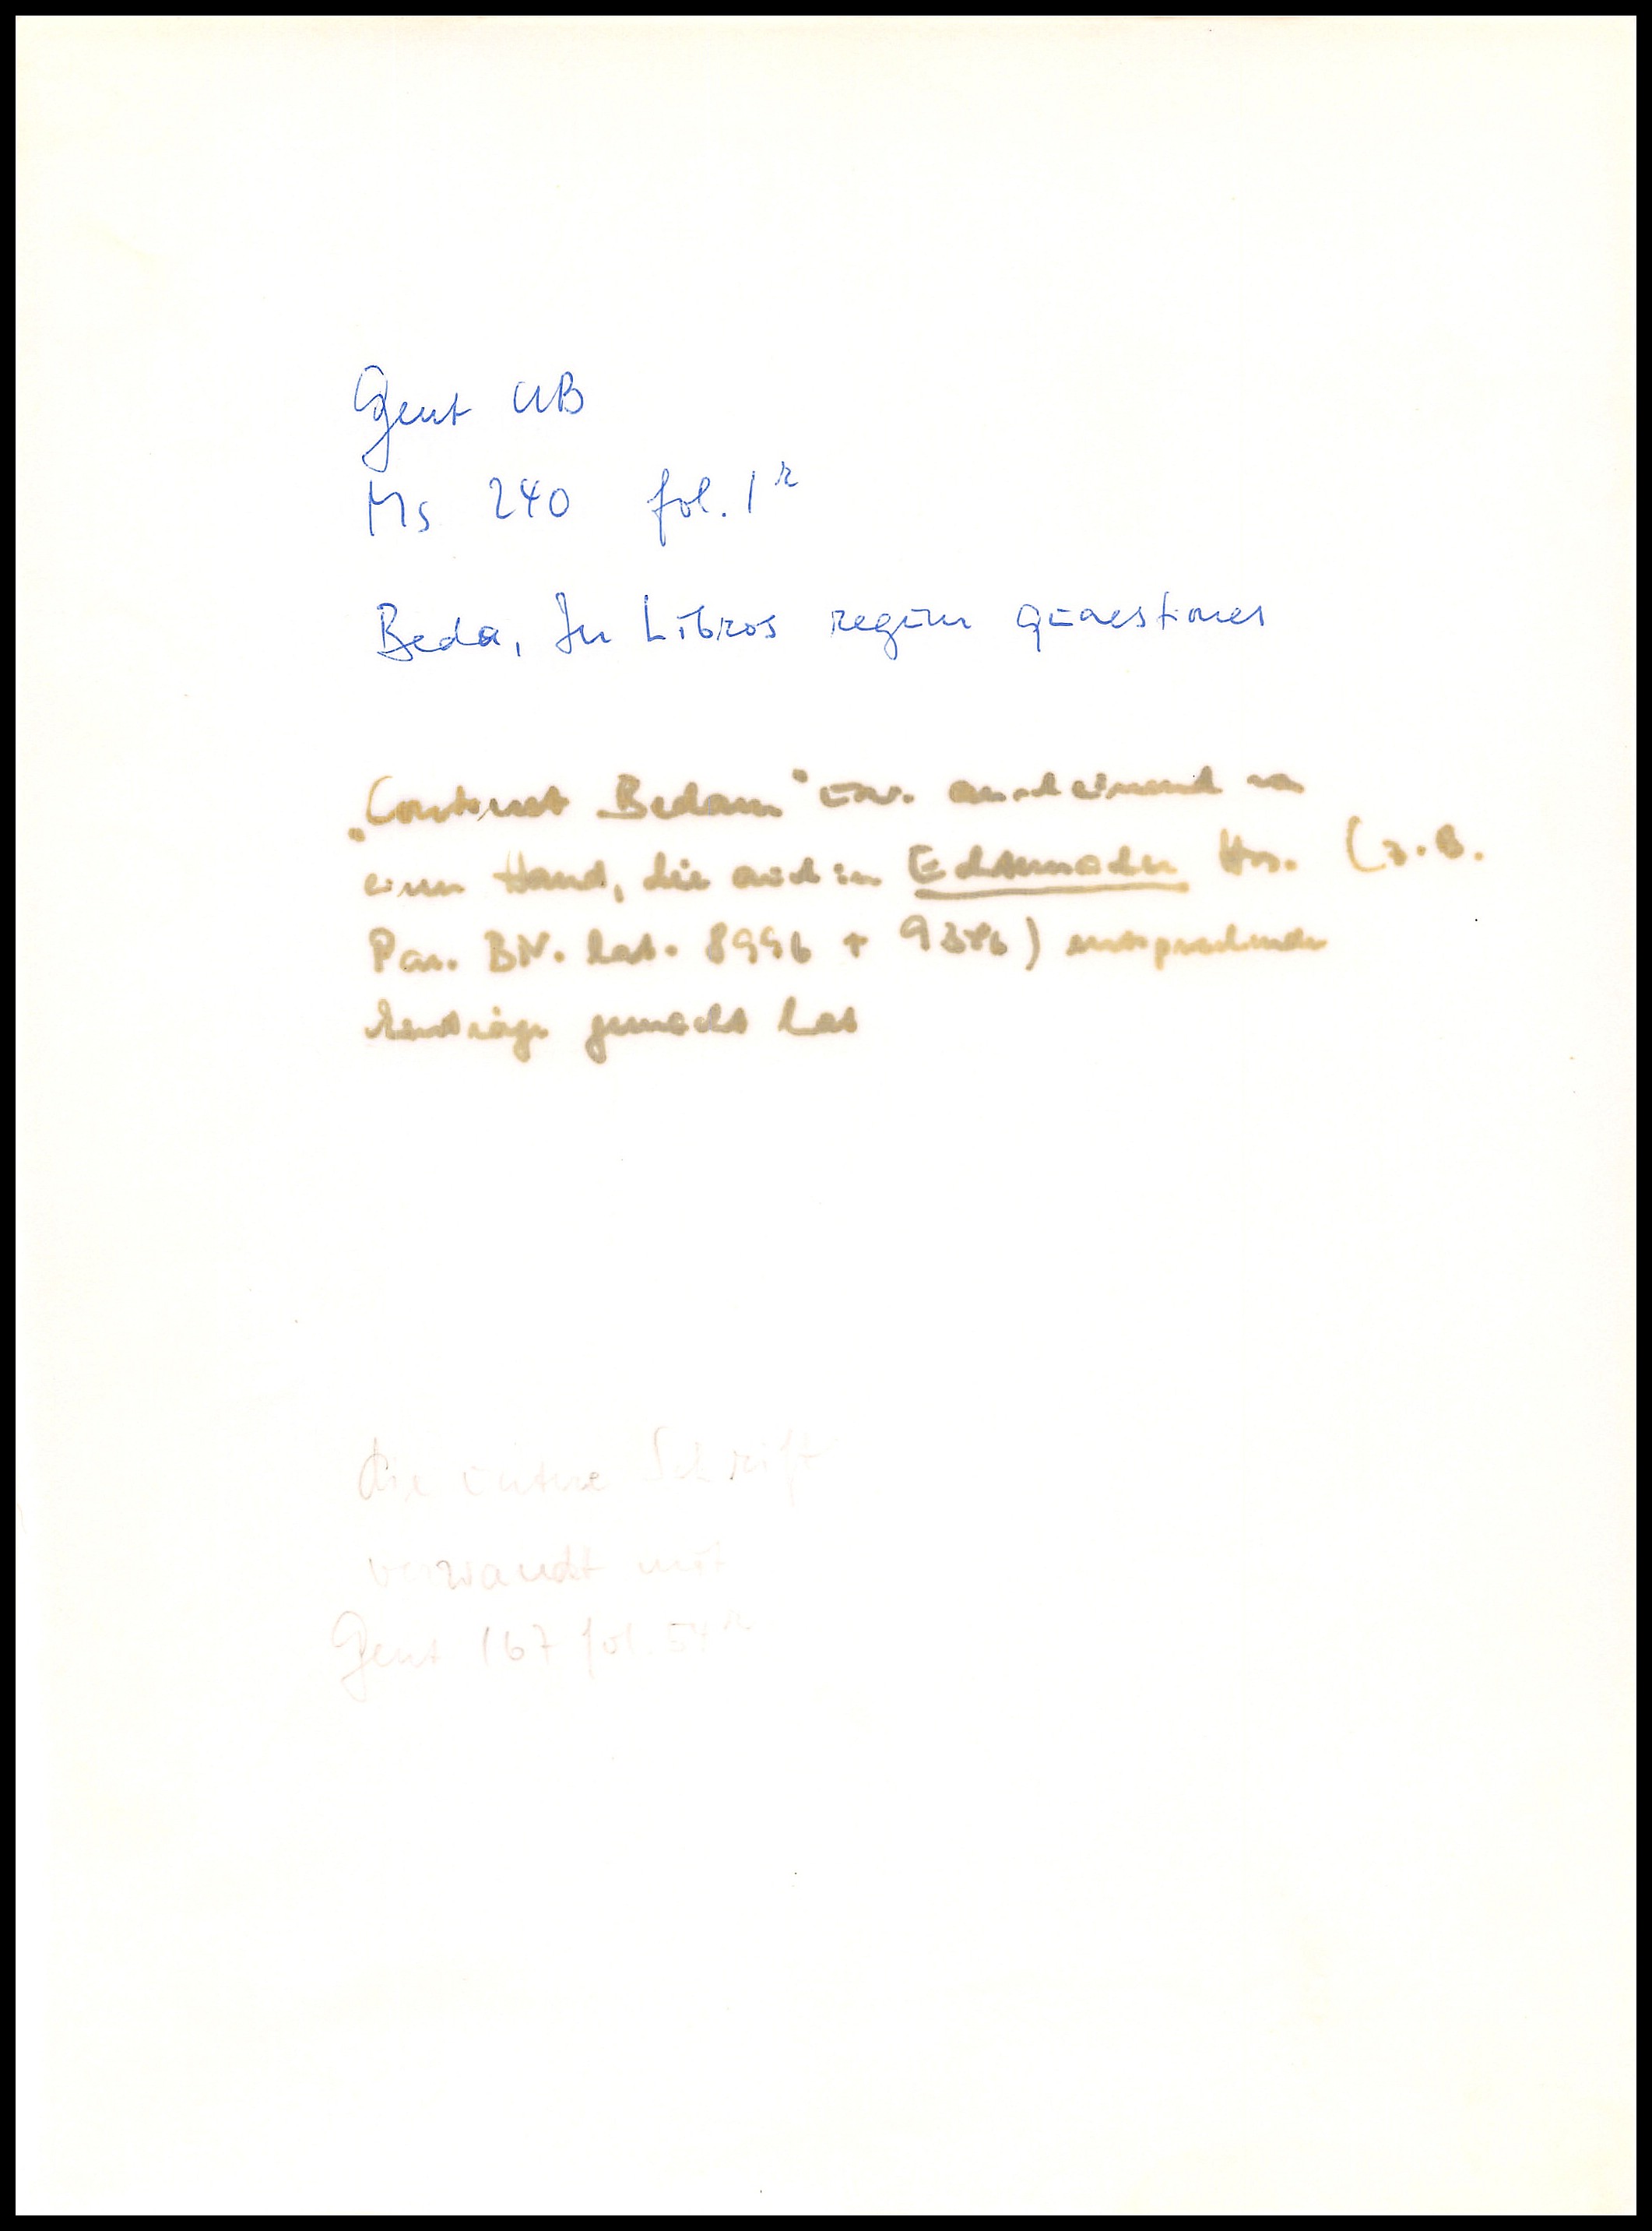 Gent UB
Ms 240 fol. 1r
Beda, In Libros regum quaestiones
„Continet Bedam" usw. anscheinend von
einer Hand, die auch in Echternacher Hss. (z.B.
Par. BN. lat. 8996 + ) entsprechende
Einträge gemacht hat
die untere Schrift
verwandt mit
Gent 167 fol. 54r